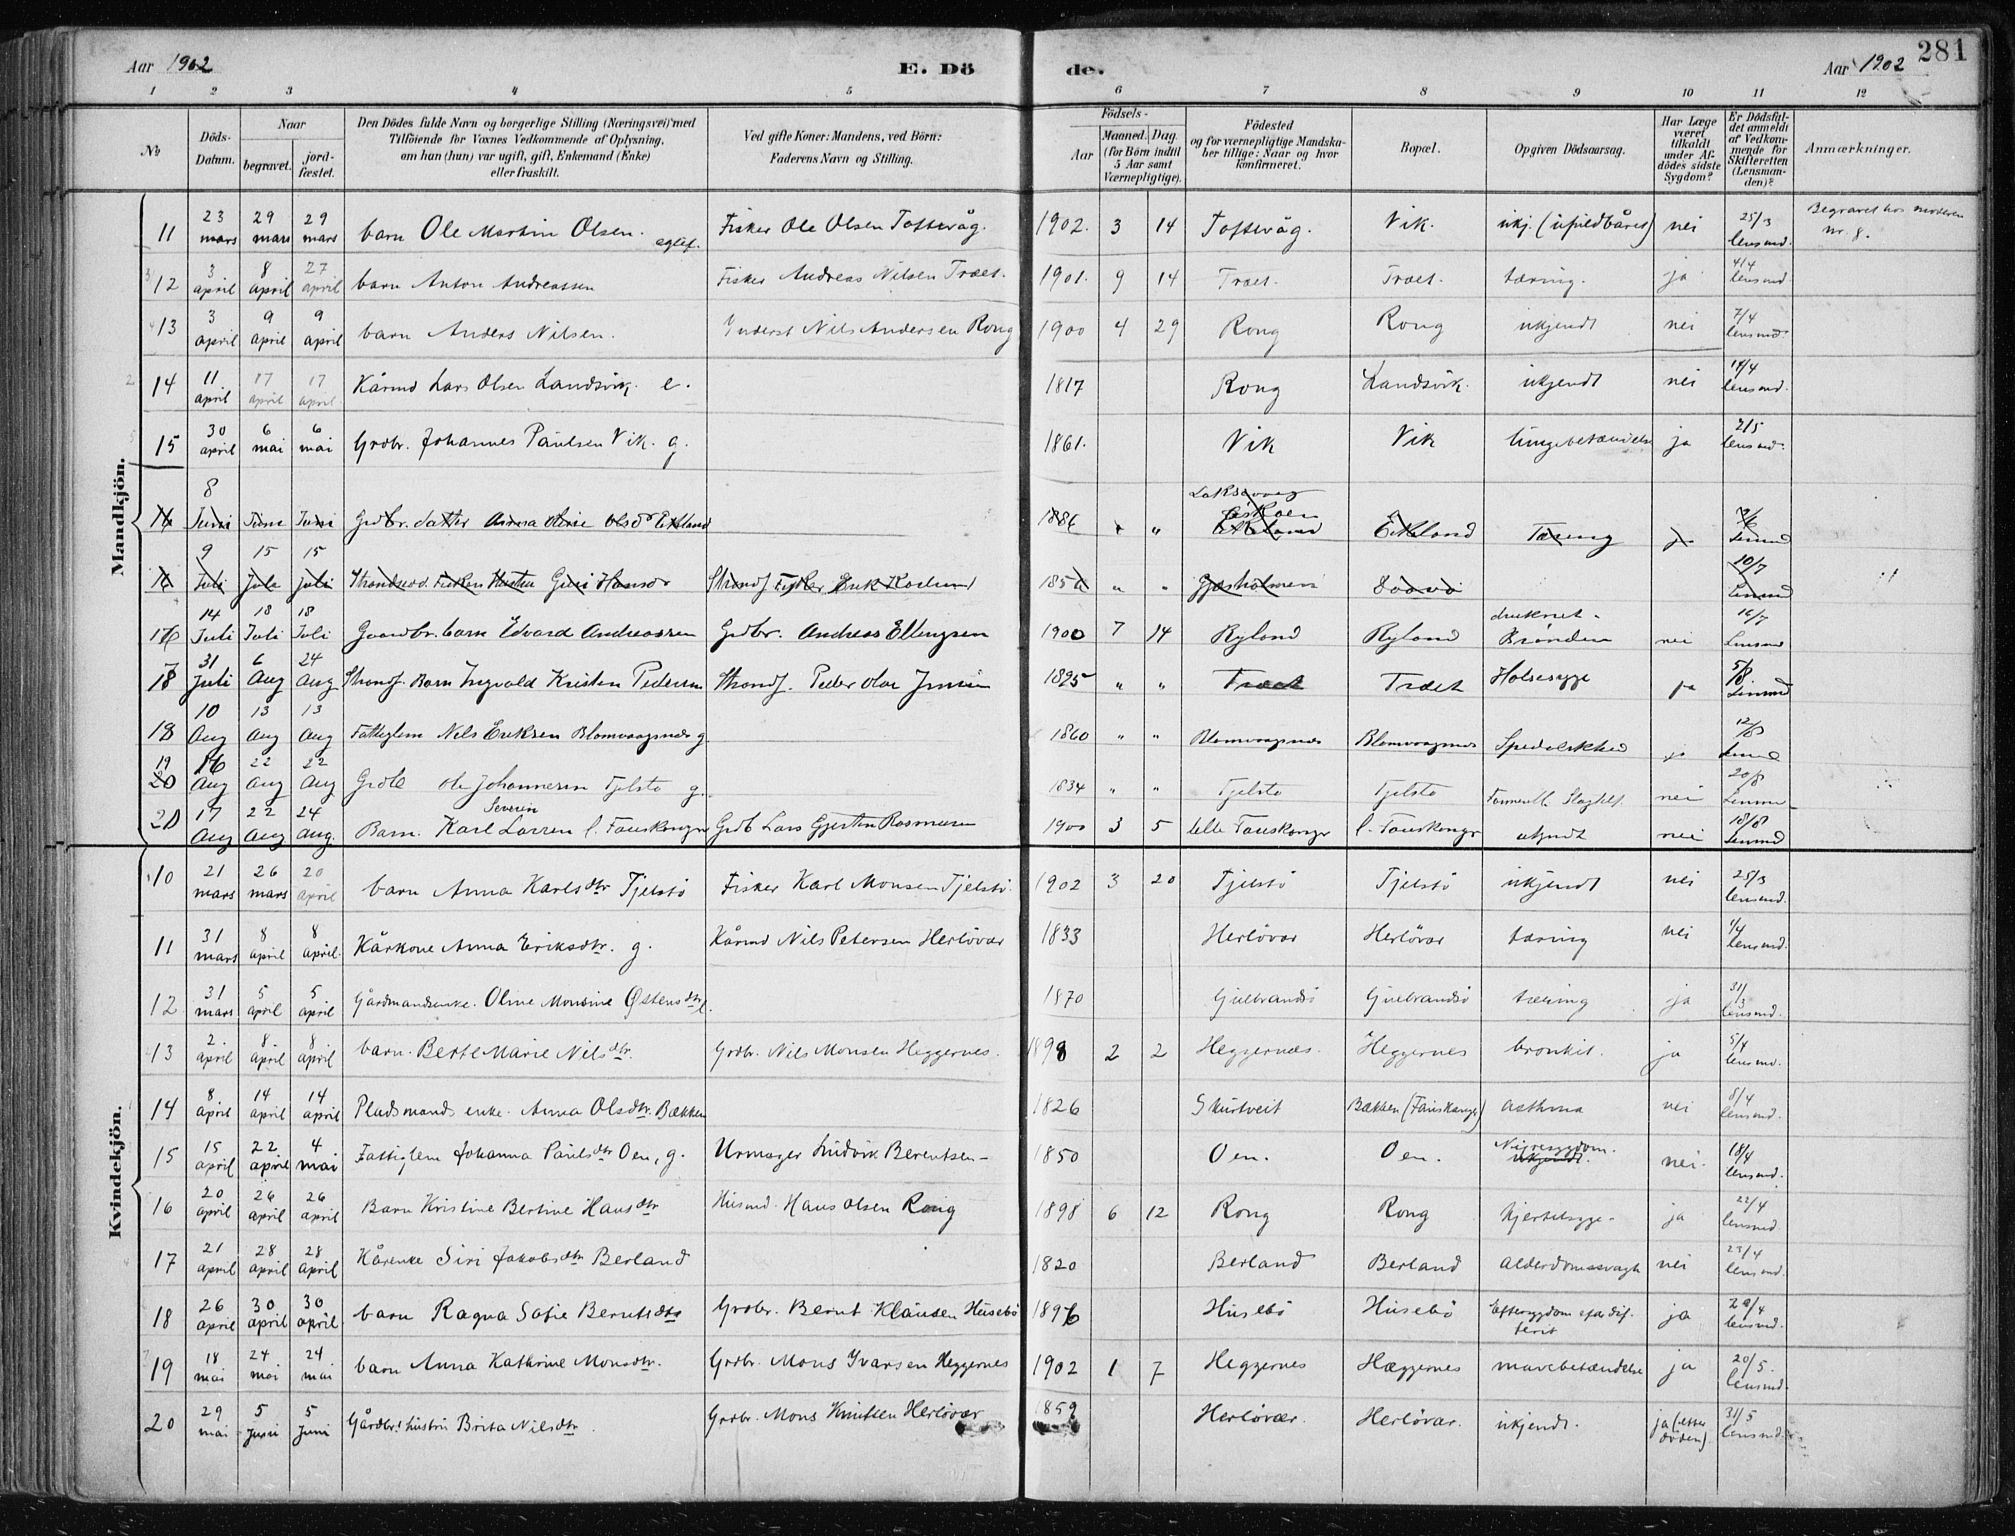 Aar 1902 E. Dö de. Aar 1902 281
1 2 3 4 5 6 7 8 9 10 11 12
No Döds-Datum. Naar begravet. jordfæstet. Den Dödes fulde Navn og borgerlige Stilling (Næringsvei) med Tilföiende for Voxnes Vedkommende af Oplysning, om han (hun) var ugift, gift, Enkemand (Enke) eller fraskilt. Ved gifte Koner: Mandens, ved Börn: Faderens Navn og Stilling. Födsels- Aar Maaned. Dag. (for Börn indtil 5 Aar samt Værnepligtige). Födested og for værnepligtige Mandskaber tillige: Naar og hvor konfirmeret. Bopæl. Opgiven Dödsaarsag. Har Læge været tilkaldt under Afdödes sidste Sygdom? Er Dödsfaldet anmeldt af Vedkommende for Skifteretten (Lensmanden)? Anmærkninger.
Mandkjön.
11 23 mars 29 mars 29 mars barn Ole Martin Olsen. Fisker Ole Olsen Toftevåg. 1902. 3 14 Toftevåg. Vik. ukj. nei 25/3 lensmd. Begravet hos moderen nr. 8.
12 3 april 8 april 27 april barn Anton Andreassen Fisker Andreas Nilsen Træet. 1901. 9 14 Træet. Træet. tæring. ja 4/4 lensmd.
13 3 april 9 april 9 april barn Anders Nilsen. Inderst Nils Andersen Rong 1900 4 29 Rong Rong ukjendt nei 7/4 lensmd.
14 11 april 17 april 17 april Kårmd Lars Olsen Landsvik. e. 1817 Rong Landsvik. ukjendt nei 14/4 lensmd.
15 30 april 6 mai 6 mai Grdbr. Johannes Paulsen Vik. g. 1861. Vik Vik lungebetændelse ja 2/5 lensmd.
16 8 Juni Juni Juni Grdbr. datter Anna Olsdr Eikeland 1886 " " Laksevaag Askøen Eikeland Tæring ja Lensmd
16 9 Juli 15 Juli 15 Juli Fisker Hustru Guri Hansdr Strandf Fisker Erik 185 " " " " 10/7 Lensmd
16 14 Juli 18 Juli 18 Juli Gaardbr. barn Edvard Andreassen Grdbr. Andreas Ellingsen 1900 7 14 Ryland Ryland druknet - Brønden nei 16/7 Lensmd
18 31 Juli 6 Aug 24 Aug Strandf. Barn Ingvald Kristen Pedersen Strandf. Peder Olai 1895 " " Træet Træet Halsesyge ja 5/8. Lensmd
18 10 Aug 13 Aug 13 Aug Fattiglem Nils Eriksen Blomvaagnæs g. 1860 " " Blomvaagnæs Blomvaagnæs Spedalskhed ja 12/8
19 20 16 Aug 22 Aug 22 Aug Grdb Ole Johannesen Tjelstø g. 1834 " " Tjelstø Tjelstø nei 20/8
20 17 Aug 22 Aug 24 Aug. Barn. Karl Severin Larsen l. Fauskanger Grdb Lars Gjertsen Rasmussen 1900 3 5 lille Fauskanger l. Fauskanger ukjendt nei 18/8 Lensmd
Kvindekjön.
10 21 mars 26 mars 20 april barn Anna Karlsdtr Tjelstö Fisker Karl Monsen Tjelstö. 1902 3 20 Tjelstö Tjelstö ukjendt nei 25/3 lensmd.
11 31 mars 8 april 8 april. Kårkone Anna Eriksdtr. g. Kårmd Nils Petersen Herlövær 1833 Herlövær Herlövær tæring nei 1/4 lensmd.
12 31 mars 5 april 5 april Gårdmandsenke. Oline Monsine Østensdtr 1870 Gulbrandsö Gulbrandsö tæring ja 31/3 lensmd.
13 2. april 8 april 8 april barn. Berte Marie Nilsdtr. Grdbr. Nils Monsen Heggernes. 1898 2 2 Heggernæs Heggernes bronkit. ja 5/4 lensmd.
14 8 april 14 april 14 april Pladsmands enke. Anna Olsdtr. Bækken 1826 Skurtveit Bækken (Fauskanger) asthma nei 8/4 lensmd.
15 15 april 22 april 4 mai Fattiglem Johanna Paulsdtr Oen, g. Urmager Ludvik Berentsen - 1850 Oen. Oen. Nyresygdom. ukjendt. nei. 18/4 lensmd.
16 20 april 26 april 26 april Barn Kristine Bertine Hansdtr Husmd. Hans Olsen Rong 1898 6 12 Rong Rong kjertelsyge. ja 22/4 lensmd.
17 21 april 28 april 28 april Kårenke Siri Jakobsdtr Berland 1820 Berland Berland alderdomssvagh nei 23/4 lensmd.
18 26 april 30 april 30 april barn Ragna Sofie Berntsdtr Grdbr. Bernt Klausen Husebö 1896 Husebö Husebö Eftersygdom efter difterit ja 29/4 lensmd.
19 18 mai 24 mai 24 mai barn Anna Kathrine Monsdtr. Grdbr. Mons Ivarsen Heggernes 1902 1 7 Heggernes Hæggernes mavebetændelse ja 20/5. lensmd.
20 29 mai 5 Juni 5 Juni Gårdbr! hustru Brita Nilsdtr Grdbr. Mons Knutsen Herlövær 1859 Herlövær. Herlövær. ukjendt. ja (etter döden) 31/5 lensmd.